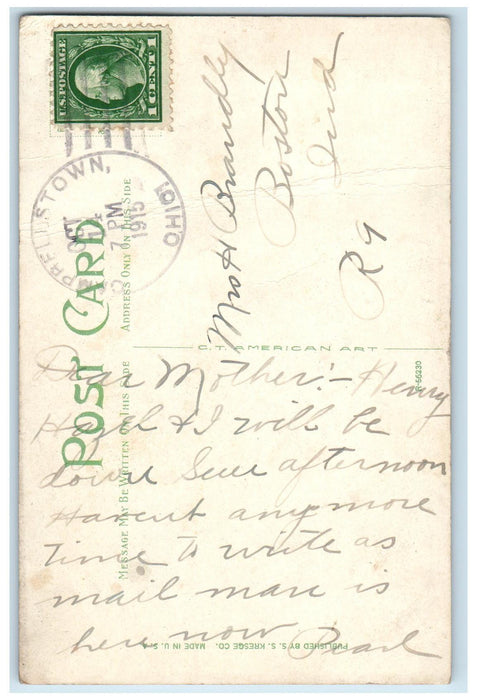 U.S. POSTAGE
1 CENT 1
CAMPBELLSTOWN, OHIO
OCT
7 PM
1915
POST CARD
ADDRESS ONLY ON THIS SIDE
MESSAGE MAY BE WRITTEN ON THIS SIDE
Mrs H Brandly
Boston
Ind
R 9
C.T. AMERICAN ART
55230
Dear Mother:- Henry
Hazel & I will be
down Sun afternoon
Havent anymore
time to write as
mail man is
here now Pearl
PUBLISHED BY S. S. KRESGE CO. MADE IN U.S.A.